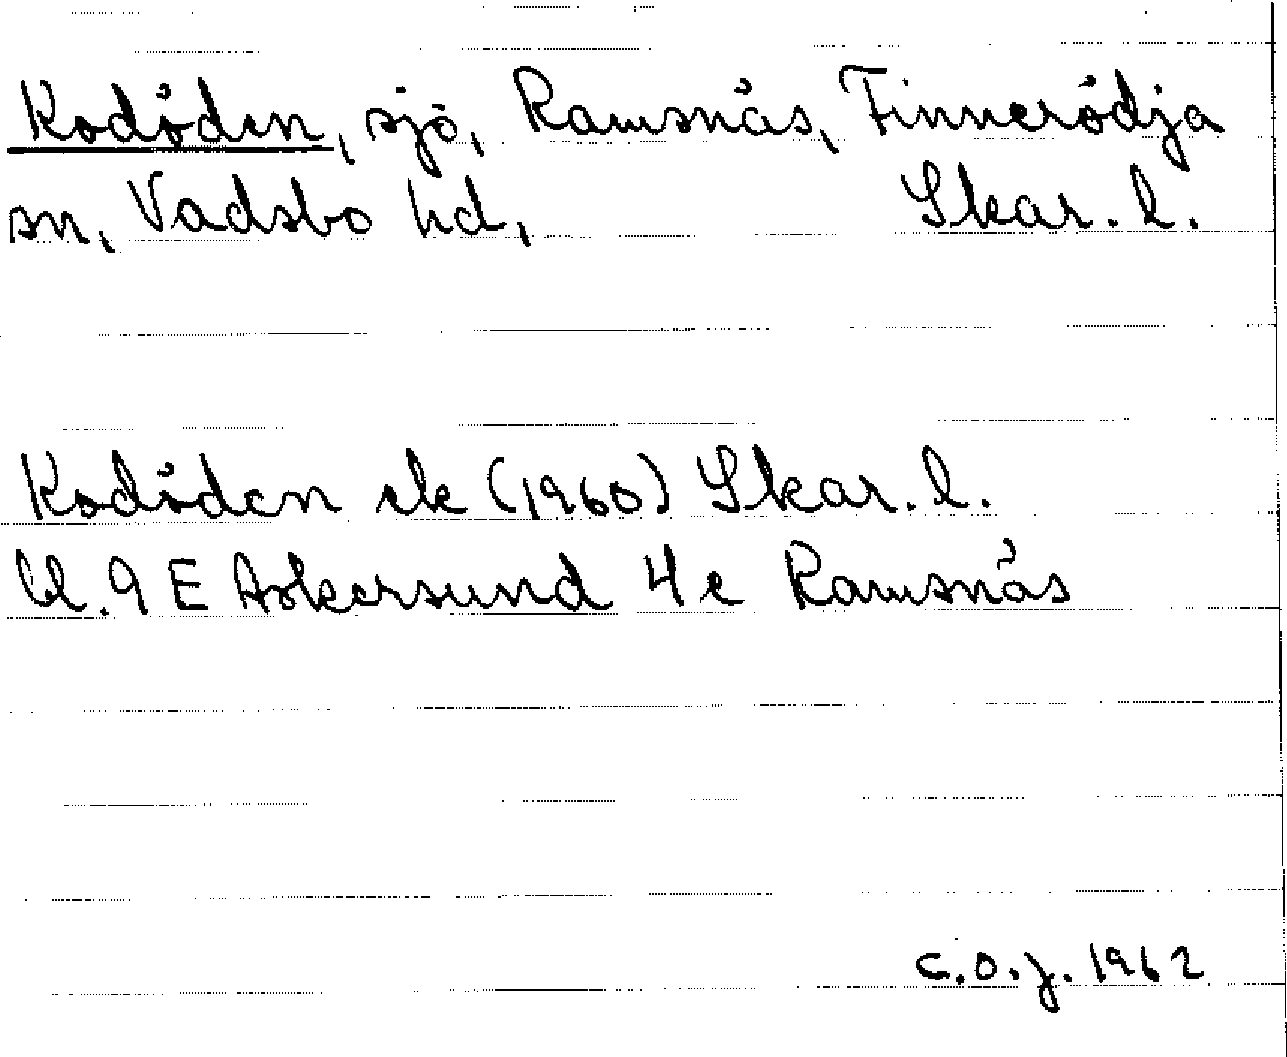 Kodöden, sjö, Ramsnäs, Finnerödja
sn, Vadsbo hd, Skar. l.
Kodöden ek (1960) Skar. l.
Bl. 9 E Askersund 4 e Ramsnäs
C.O.J. 1962